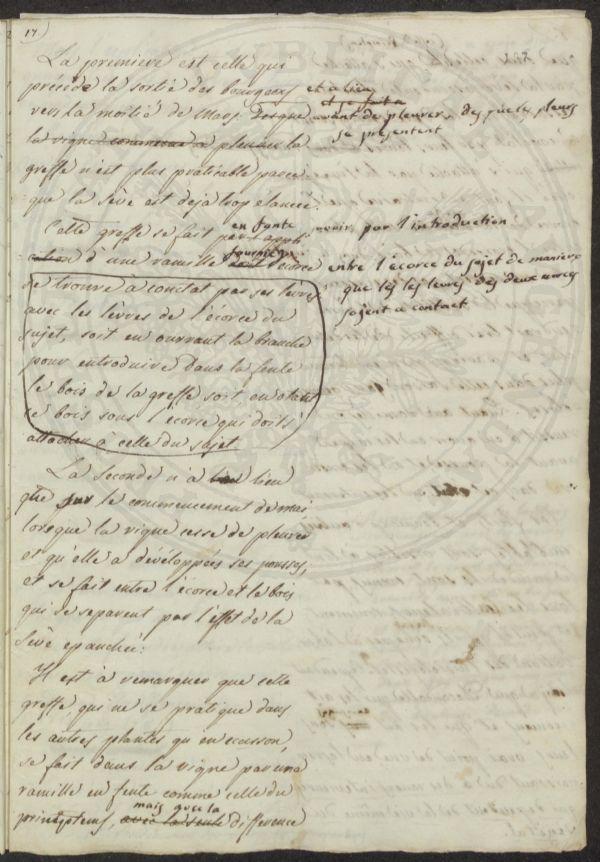 17)
La premiere est celle qui
précéde la sortie des bourgeons et a lieu
vers la moitié de Mars et se fait
avant de pleurer, dès que les pleurs
se présentent
la vigne commence à pleurer la
greffe n'est plus praticable parce
que la sève est déja trop élancée.
Cette greffe se fait en fente
par l'introduction
d'une ramille l'écorce entre l'écorce du sujet de maniere
que les levres des deux
soyent a contact
se trouve à conctat par ses levres
avec les lèvres de l'écorce du
sujet, soit en ouvrant la branche
pour introduire dans la fente
le bois de la greffe soit en otant
le bois sous l'écorce qui doit s'
attacher à celle du sujet
La seconde n'a lieu
que sur le commencement de mai
lorsque la vigne cesse de pleurer
et qu'elle a développées ses pousses,
et se fait entre l'écorce et le bois
qui se separent par l'effet de la
sève epanchée:
Il est à remarquer que cette
greffe, qui ne se pratique dans
les autres plantes qu'en ecusson,
se fait dans la vigne par une
ramille en fente comme celle du
mais avec la
printemps, avec la seule difference